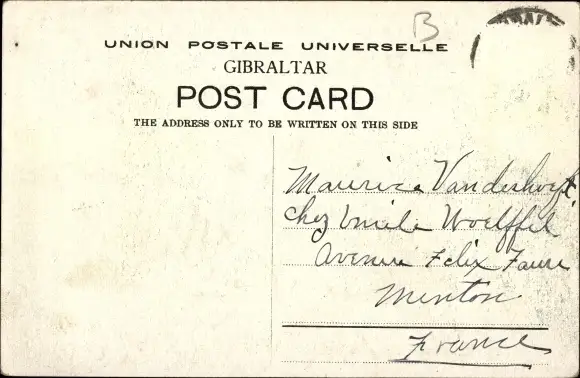 B
UNION POSTALE UNIVERSELLE
GIBRALTAR
POST CARD
THE ADDRESS ONLY TO BE WRITTEN ON THIS SIDE
Maurice
chez Woelffel
Avenue Felix Faure
Menton
France